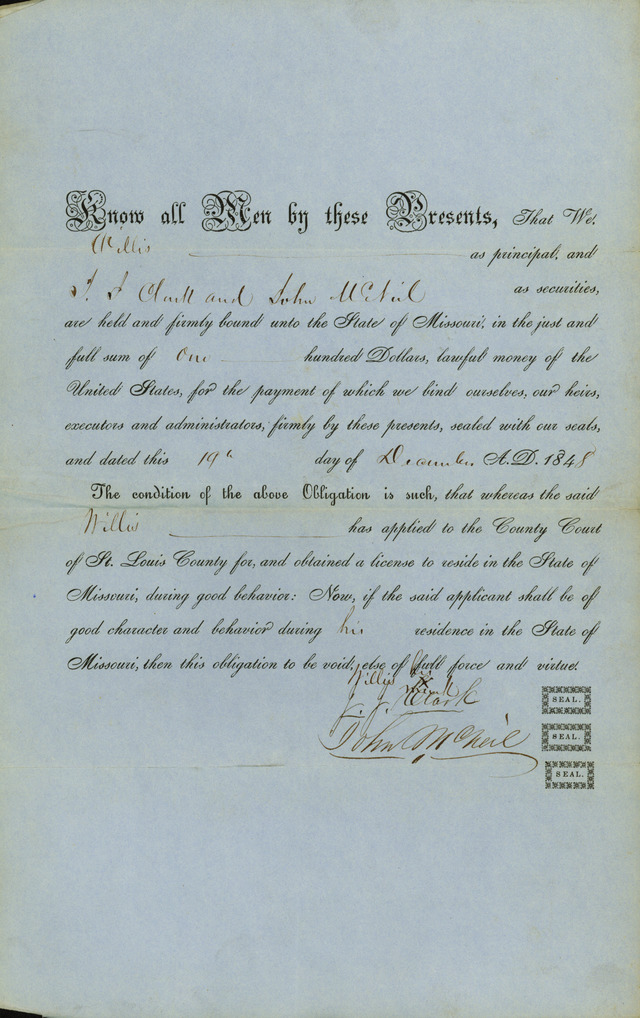 Know all Men by these Presents, That We,
Willis as principal, and
Clark and John McNeil as securities,
are held and firmly bound unto the State of Missouri, in the just and
full sum of One hundred Dollars, lawful money of the
United States, for the payment of which we bind ourselves, our heirs,
executors and administrators, firmly by these presents, sealed with our seals,
and dated this 19th day of December A.D. 1848
The condition of the above Obligation is such, that whereas the said
Willis has applied to the County Court
of St. Louis County for, and obtained a license to reside in the State of
Missouri, during good behavior: Now, if the said applicant shall be of
good character and behavior during his residence in the State of
Missouri, then this obligation to be void, else of full force and virtue.
Willis X
Clark SEAL.
John McNeil SEAL.
SEAL.